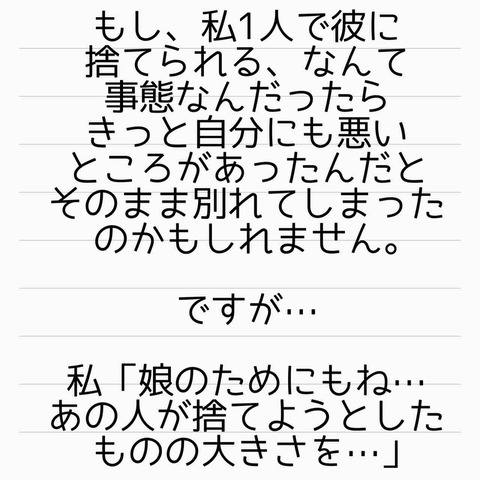 もし、私1人で彼に
捨てられる、なんて
事態なんだったら
きっと自分にも悪い
ところがあったんだと
そのまま別れてしまった
のかもしれません。
ですが…
私「娘のためにもね…
あの人が捨てようとした
ものの大きさを…」